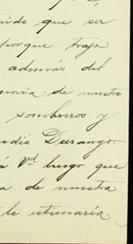 nido que ser
porque traje
además del
novia de nuestro
sombreros y
udio Durango
á Vd. luego que
a de nuestra
le estimaría